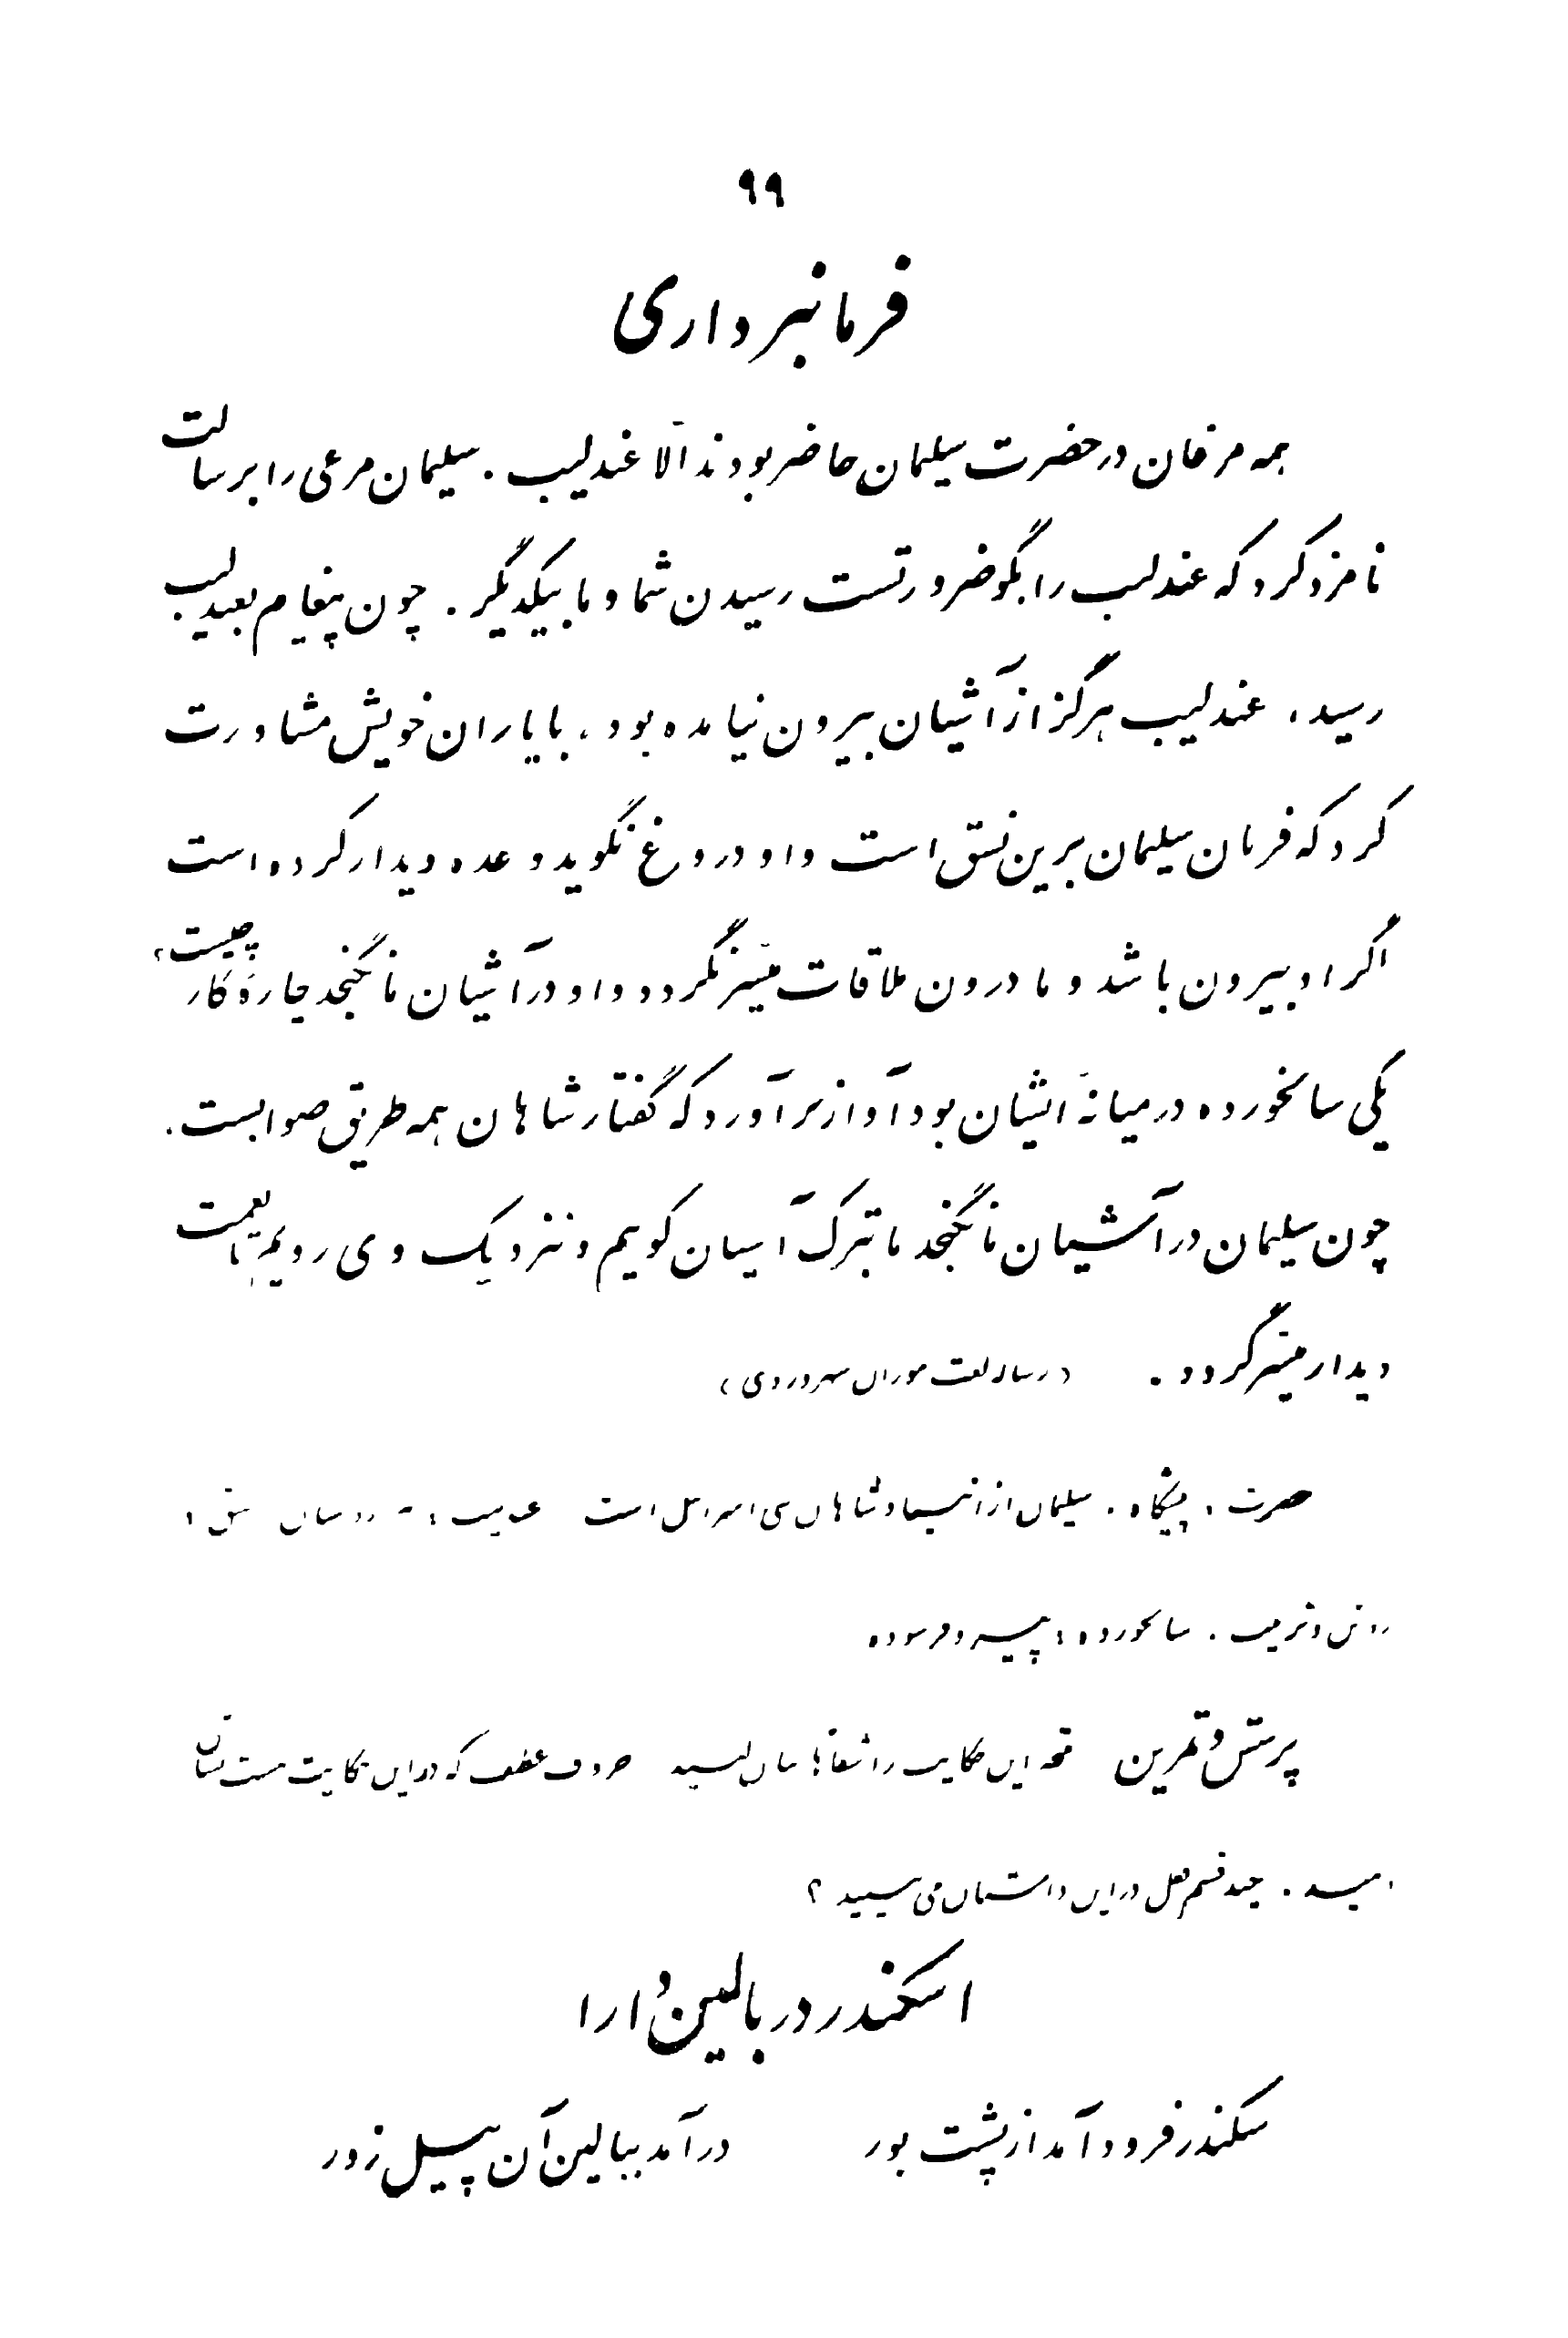 ۹۹
فرمانبرداری
همه مرغان در حضرت سلیمان حاضر بودند الّا عندلیب . سلیمان مرغی را برسالت
نامزد کرد که عندلیب را بگو ضرورتست رسیدن شما و ما بیکدیگر . چون پیغام بعندلیب
رسید ، عندلیب هرگز از آشیان بیرون نیامده بود ، با یاران خویش مشاورت
کرد که فرمان سلیمان برین نسق است و او دروغ نگوید وعده دیدار کرده است
اگر او بیرون باشد و ما درون ملاقات میسّر نگردد و او در آشیان ما نگنجد چارهٔ کار چیست ؟
یکی سالخورده در میانهٔ ایشان بود آواز برآورد که گفتار شاهان همه طریق صوابست .
چون سلیمان در آشیان ما نگنجد ما بترک آشیان گوییم و نزدیک وی رویم تا نعمت
دیدار میسّر گردد . ( رساله لغت موران سهروردی )
حضرت ، پیشگاه . سلیمان از انبیاء و شاهان بنی اسرائیل است عندلیب : نسق :
روش و ترتیب . سالخورده : پیر و فرسوده
پرسش و تمرین این حکایت را شفاها بیان کنید حروف عطف که در این حکایت هست نشان
دهید . چند قسم فعل در این داستان می‌بینید ؟
اسکندر در بالین دارا
سکندر فرود آمد از پشت بور درآمد ببالین آن پیل زور